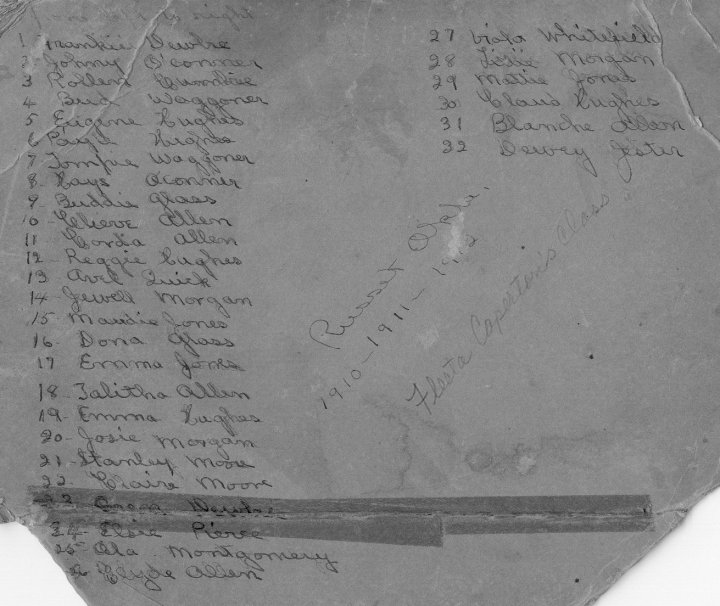 to right
1 Frankie Dewbre
2 Johnny O'conner
3 Rollen Cumbie
4 Bud Waggoner
5 Eugene Hughes
6 Hughes
7 Tommie Waggoner
8- Hays Oconner
9- Buddie Glass
10 Cleave Allen
11 Cordia Allen
12- Reggie Hughes
13 Avel Quick
14- Jewell Morgan
15- Maudie Jones
16- Dona Glass
17 Emma Jones
18- Talitha Allen
19- Emma Hughes
20- Josie Morgan
21- Stanley Moore
22- Claire Moore
23 Dewbre
24- Elsie Pierce
25- Ola Montgomery
26 Clyde Allen
27 Viola Whitefield
28 Morgan
29 Matie Jones
30 Claud Hughes
31 Blanche Allen
32 Dewey Jester
Russet Okla.
1910-1911-1912
Fleeta Caperton's class